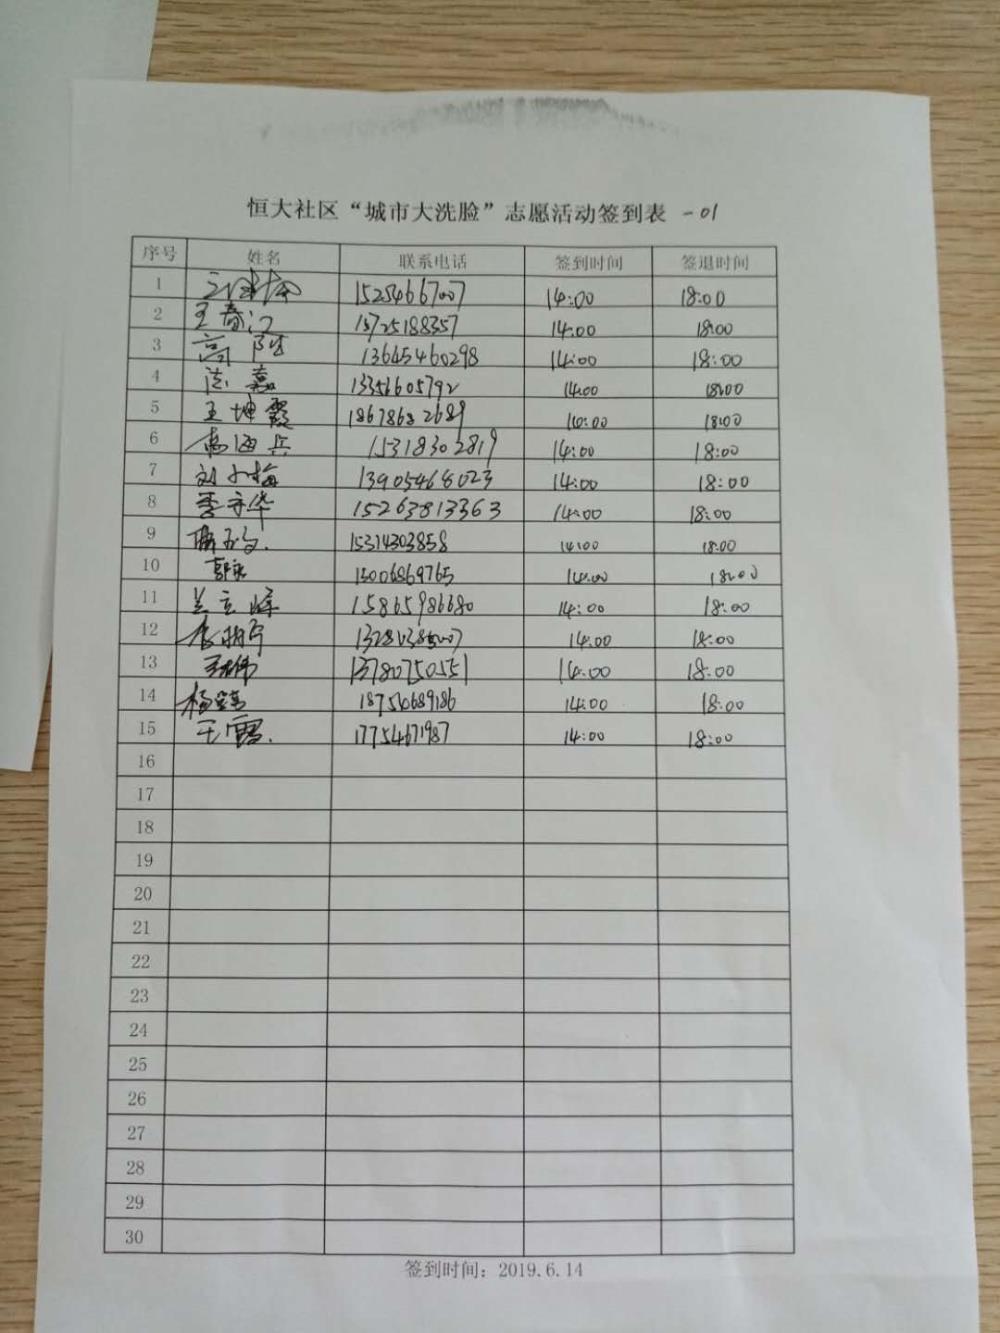 恒大社区“城市大洗脸”志愿活动签到表 -01
序号 姓名 联系电话 签到时间 签退时间
1 15254667007 14:00 18:00
2 王春江 13725188357 14:00 18:00
3 高阳 13645460298 14:00 18:00
4 嘉 13356605792 14:00 18:00
5 王坤霞 18678682689 14:00 18:00
6 海兵 15318302819 14:00 18:00
7 刘小梅 13905468023 14:00 18:00
8 李守华 15263813363 14:00 18:00
9 15314303858 14:00 18:00
10 15006869765 14:00 18:00
11 兰立峰 15865986680 14:00 18:00
12 14:00 18:00
13 王伟 13780750551 14:00 18:00
14 杨 18754689186 14:00 18:00
15 王露 17754671987 14:00 18:00
16
17
18
19
20
21
22
23
24
25
26
27
28
29
30
签到时间：2019.6.14